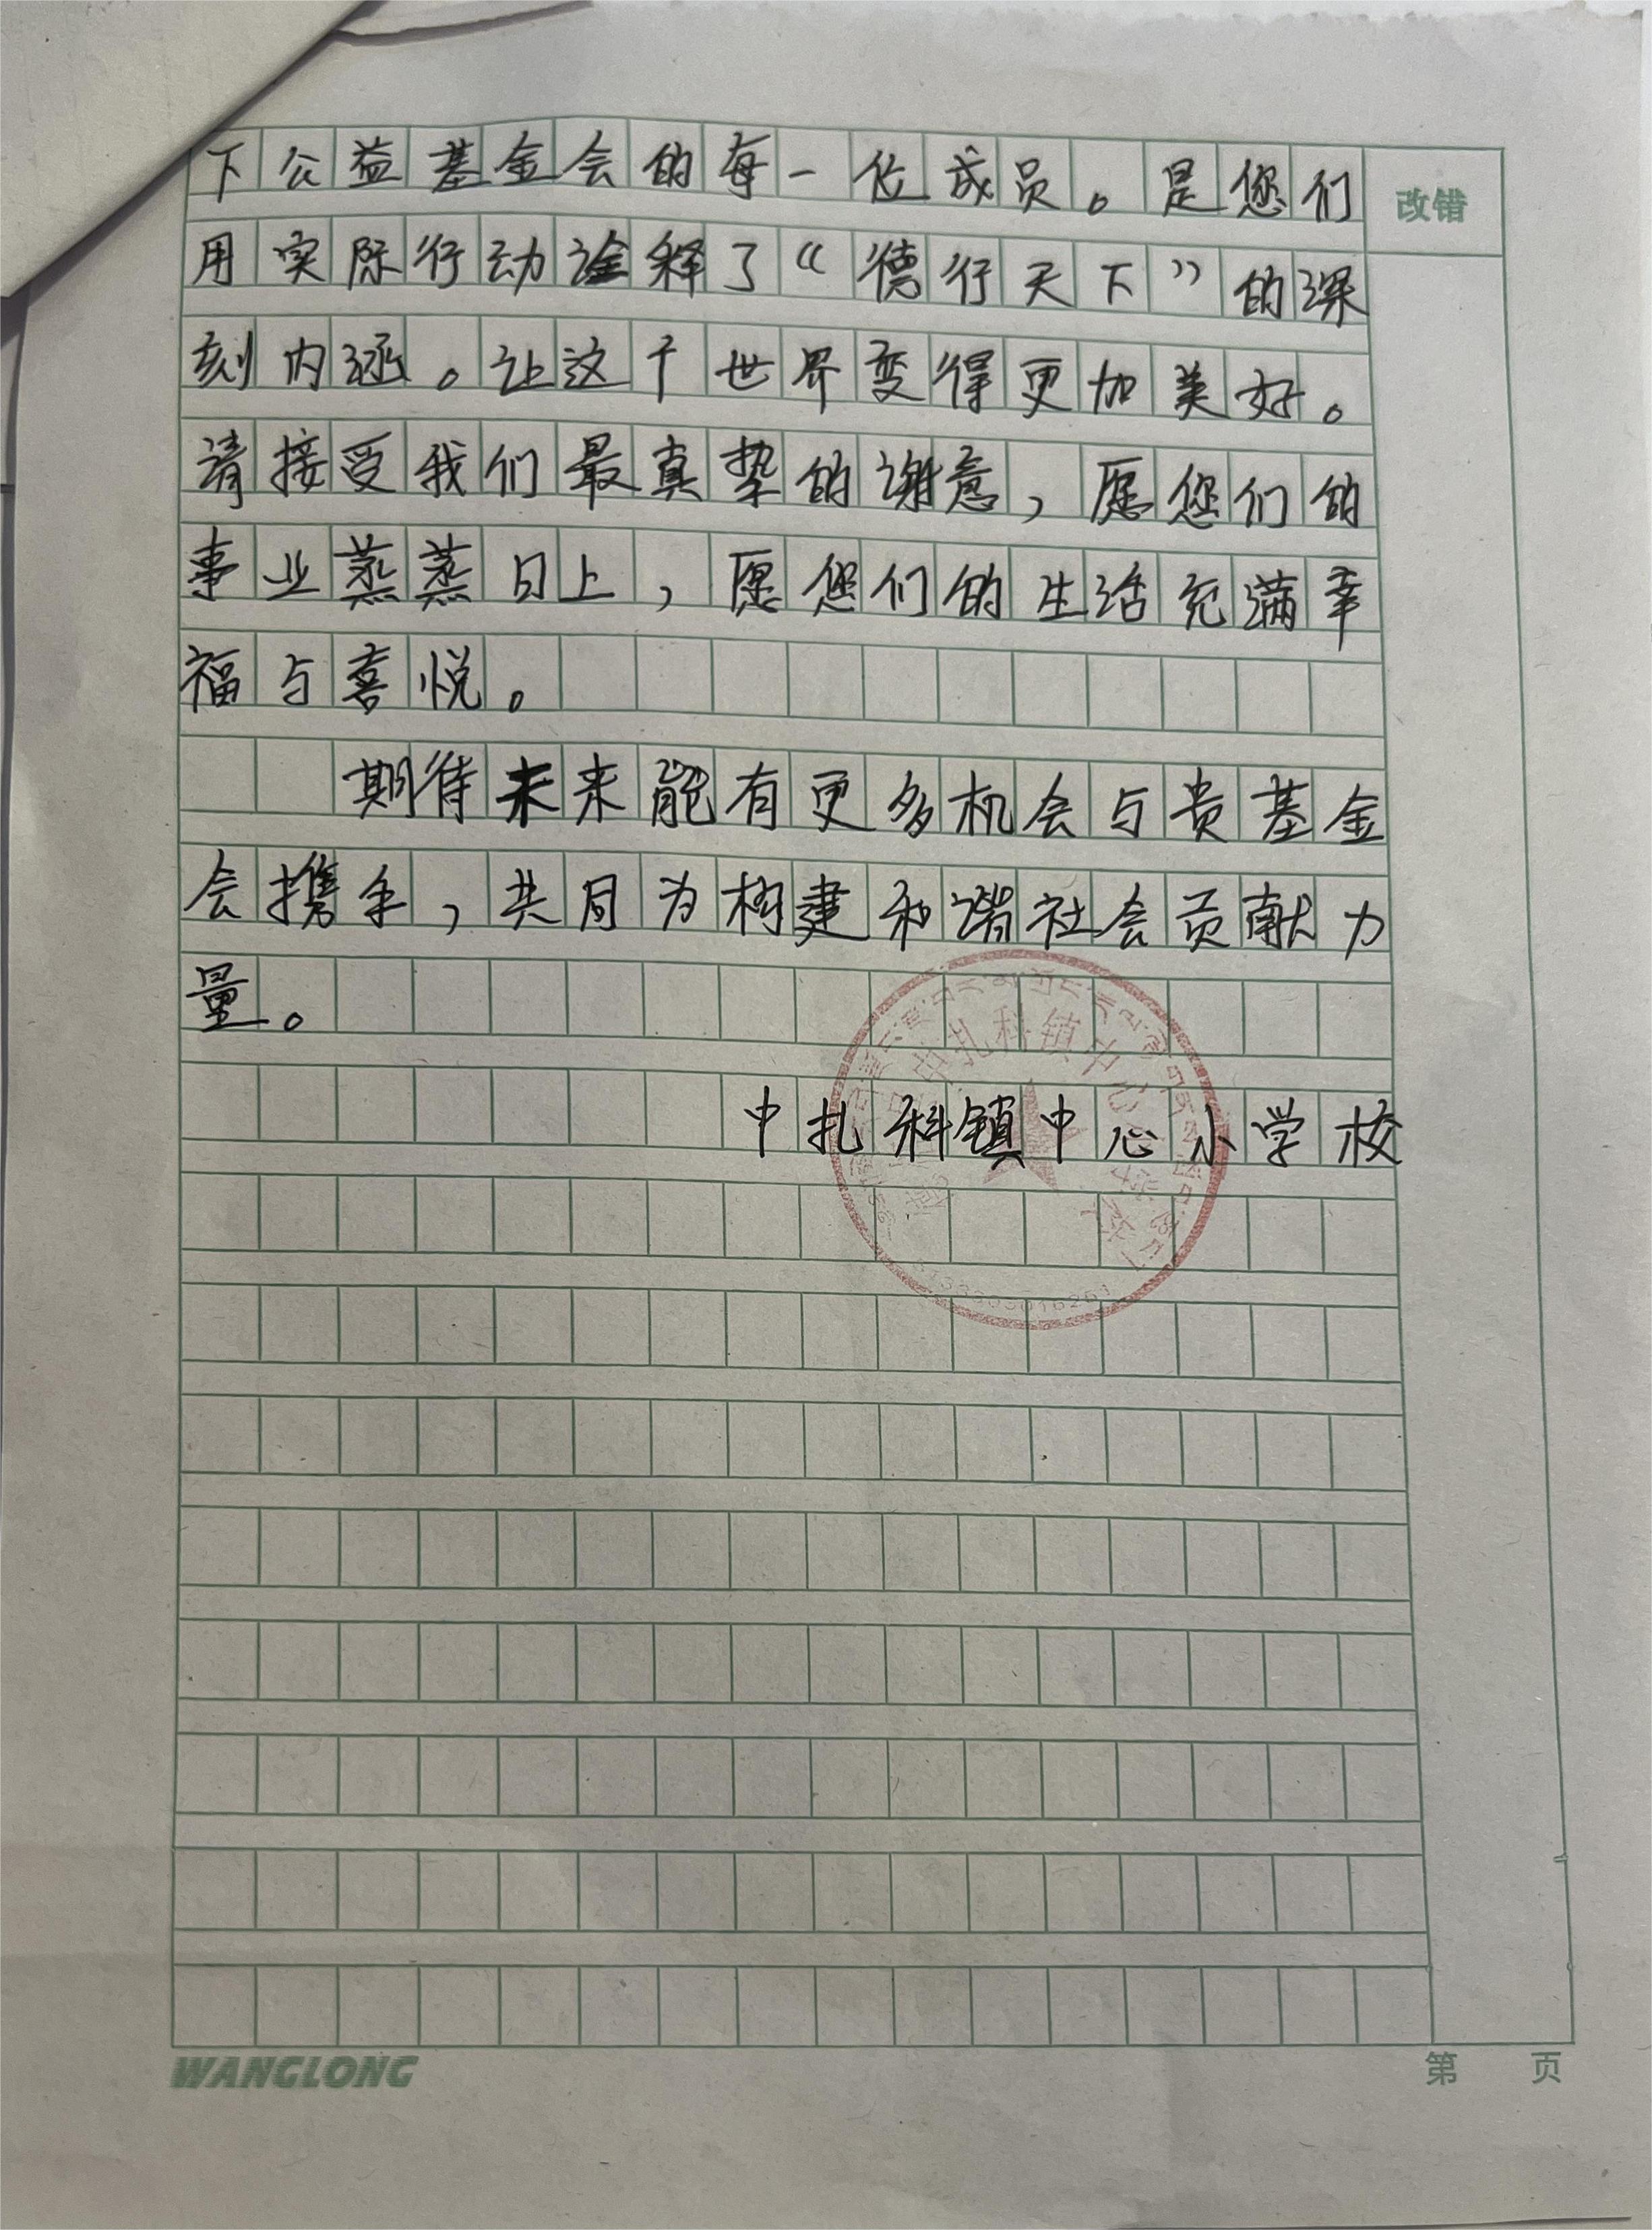 下公益基金会的每一位成员。是您们
改错
用实际行动诠释了“德行天下”的深
刻内涵。让这个世界变得更加美好。
请接受我们最真挚的谢意，愿您们的
事业蒸蒸日上，愿您们的生活充满幸
福与喜悦。
期待未来能有更多机会与贵基金
会携手，共同为构建和谐社会贡献力
量。
中扎科镇中心小学校
中扎科镇中心
WANGLONG
第 页